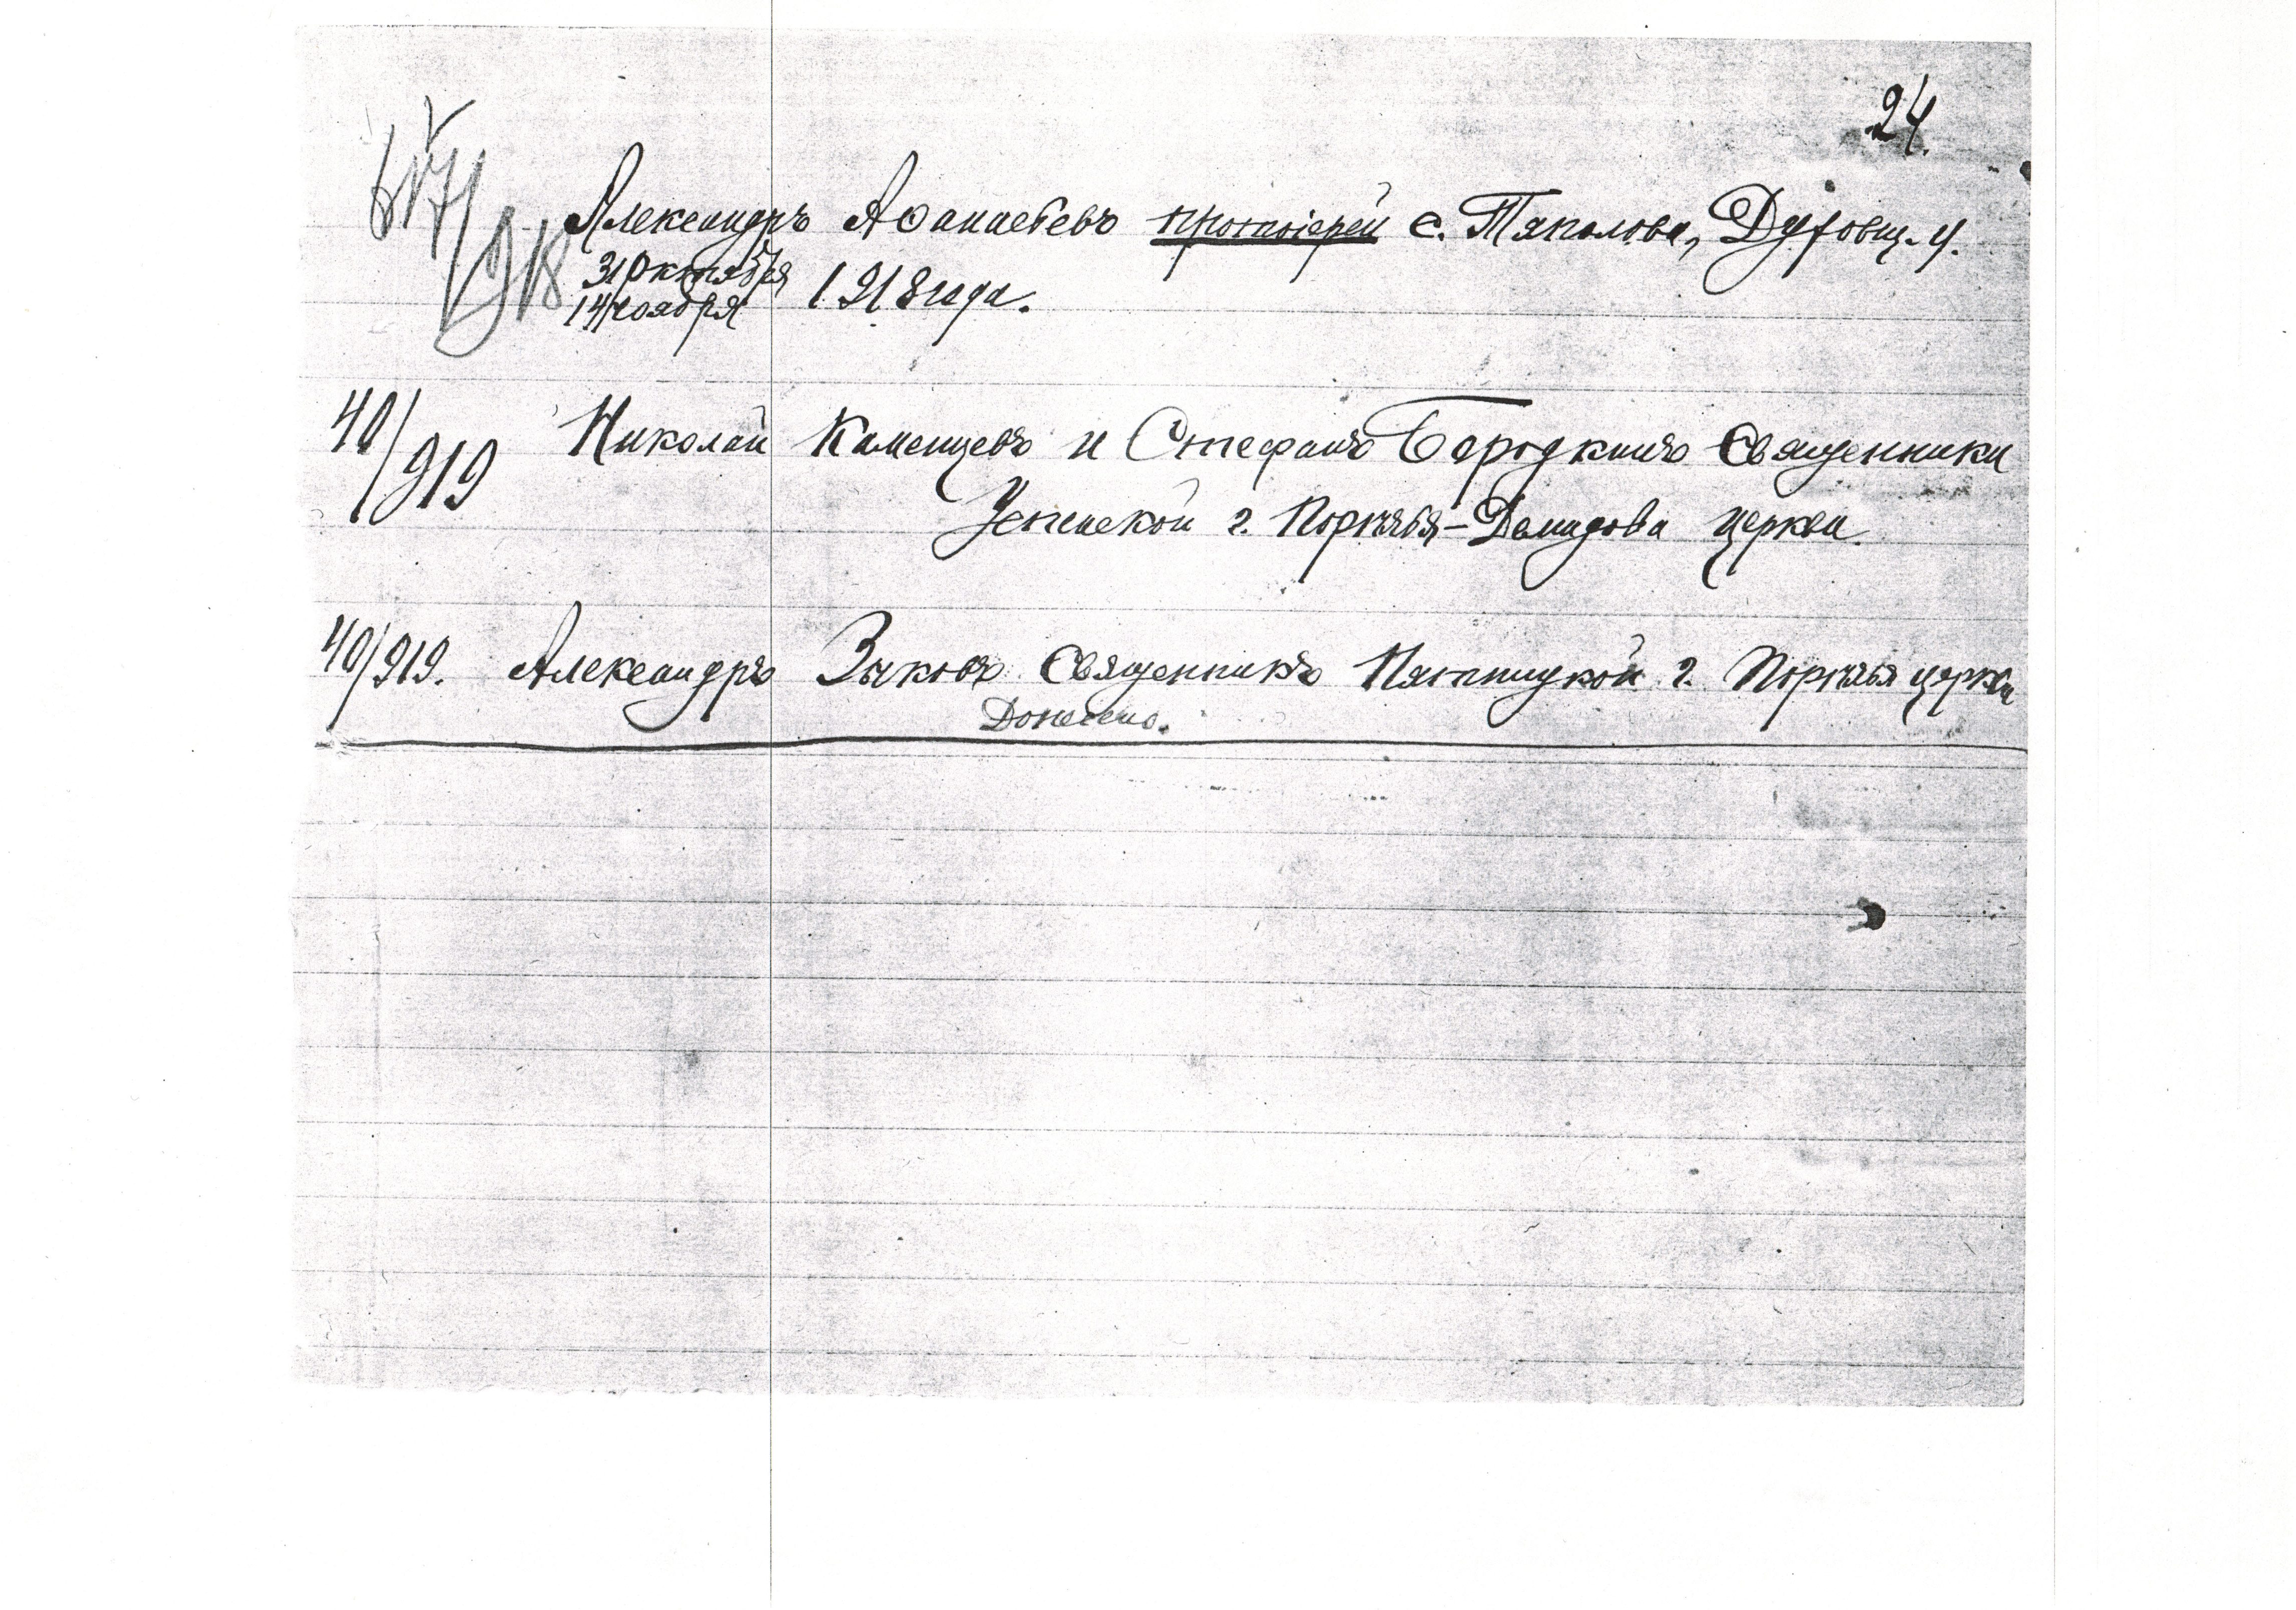 24.
617/918 Александръ Аѳанасьевъ протоіерей с. Тяполова, Духовщ. у.
31 Октября
14 Ноября 1918 года.
40/919 Николай Каменцевъ и Стефанъ Бородкинъ Священники
Успенской г. Порѣчья-Демидова церкви.
40/919. Александръ Зыковъ Священникъ Пятницкой г. Порѣчья церкви
Донесено.